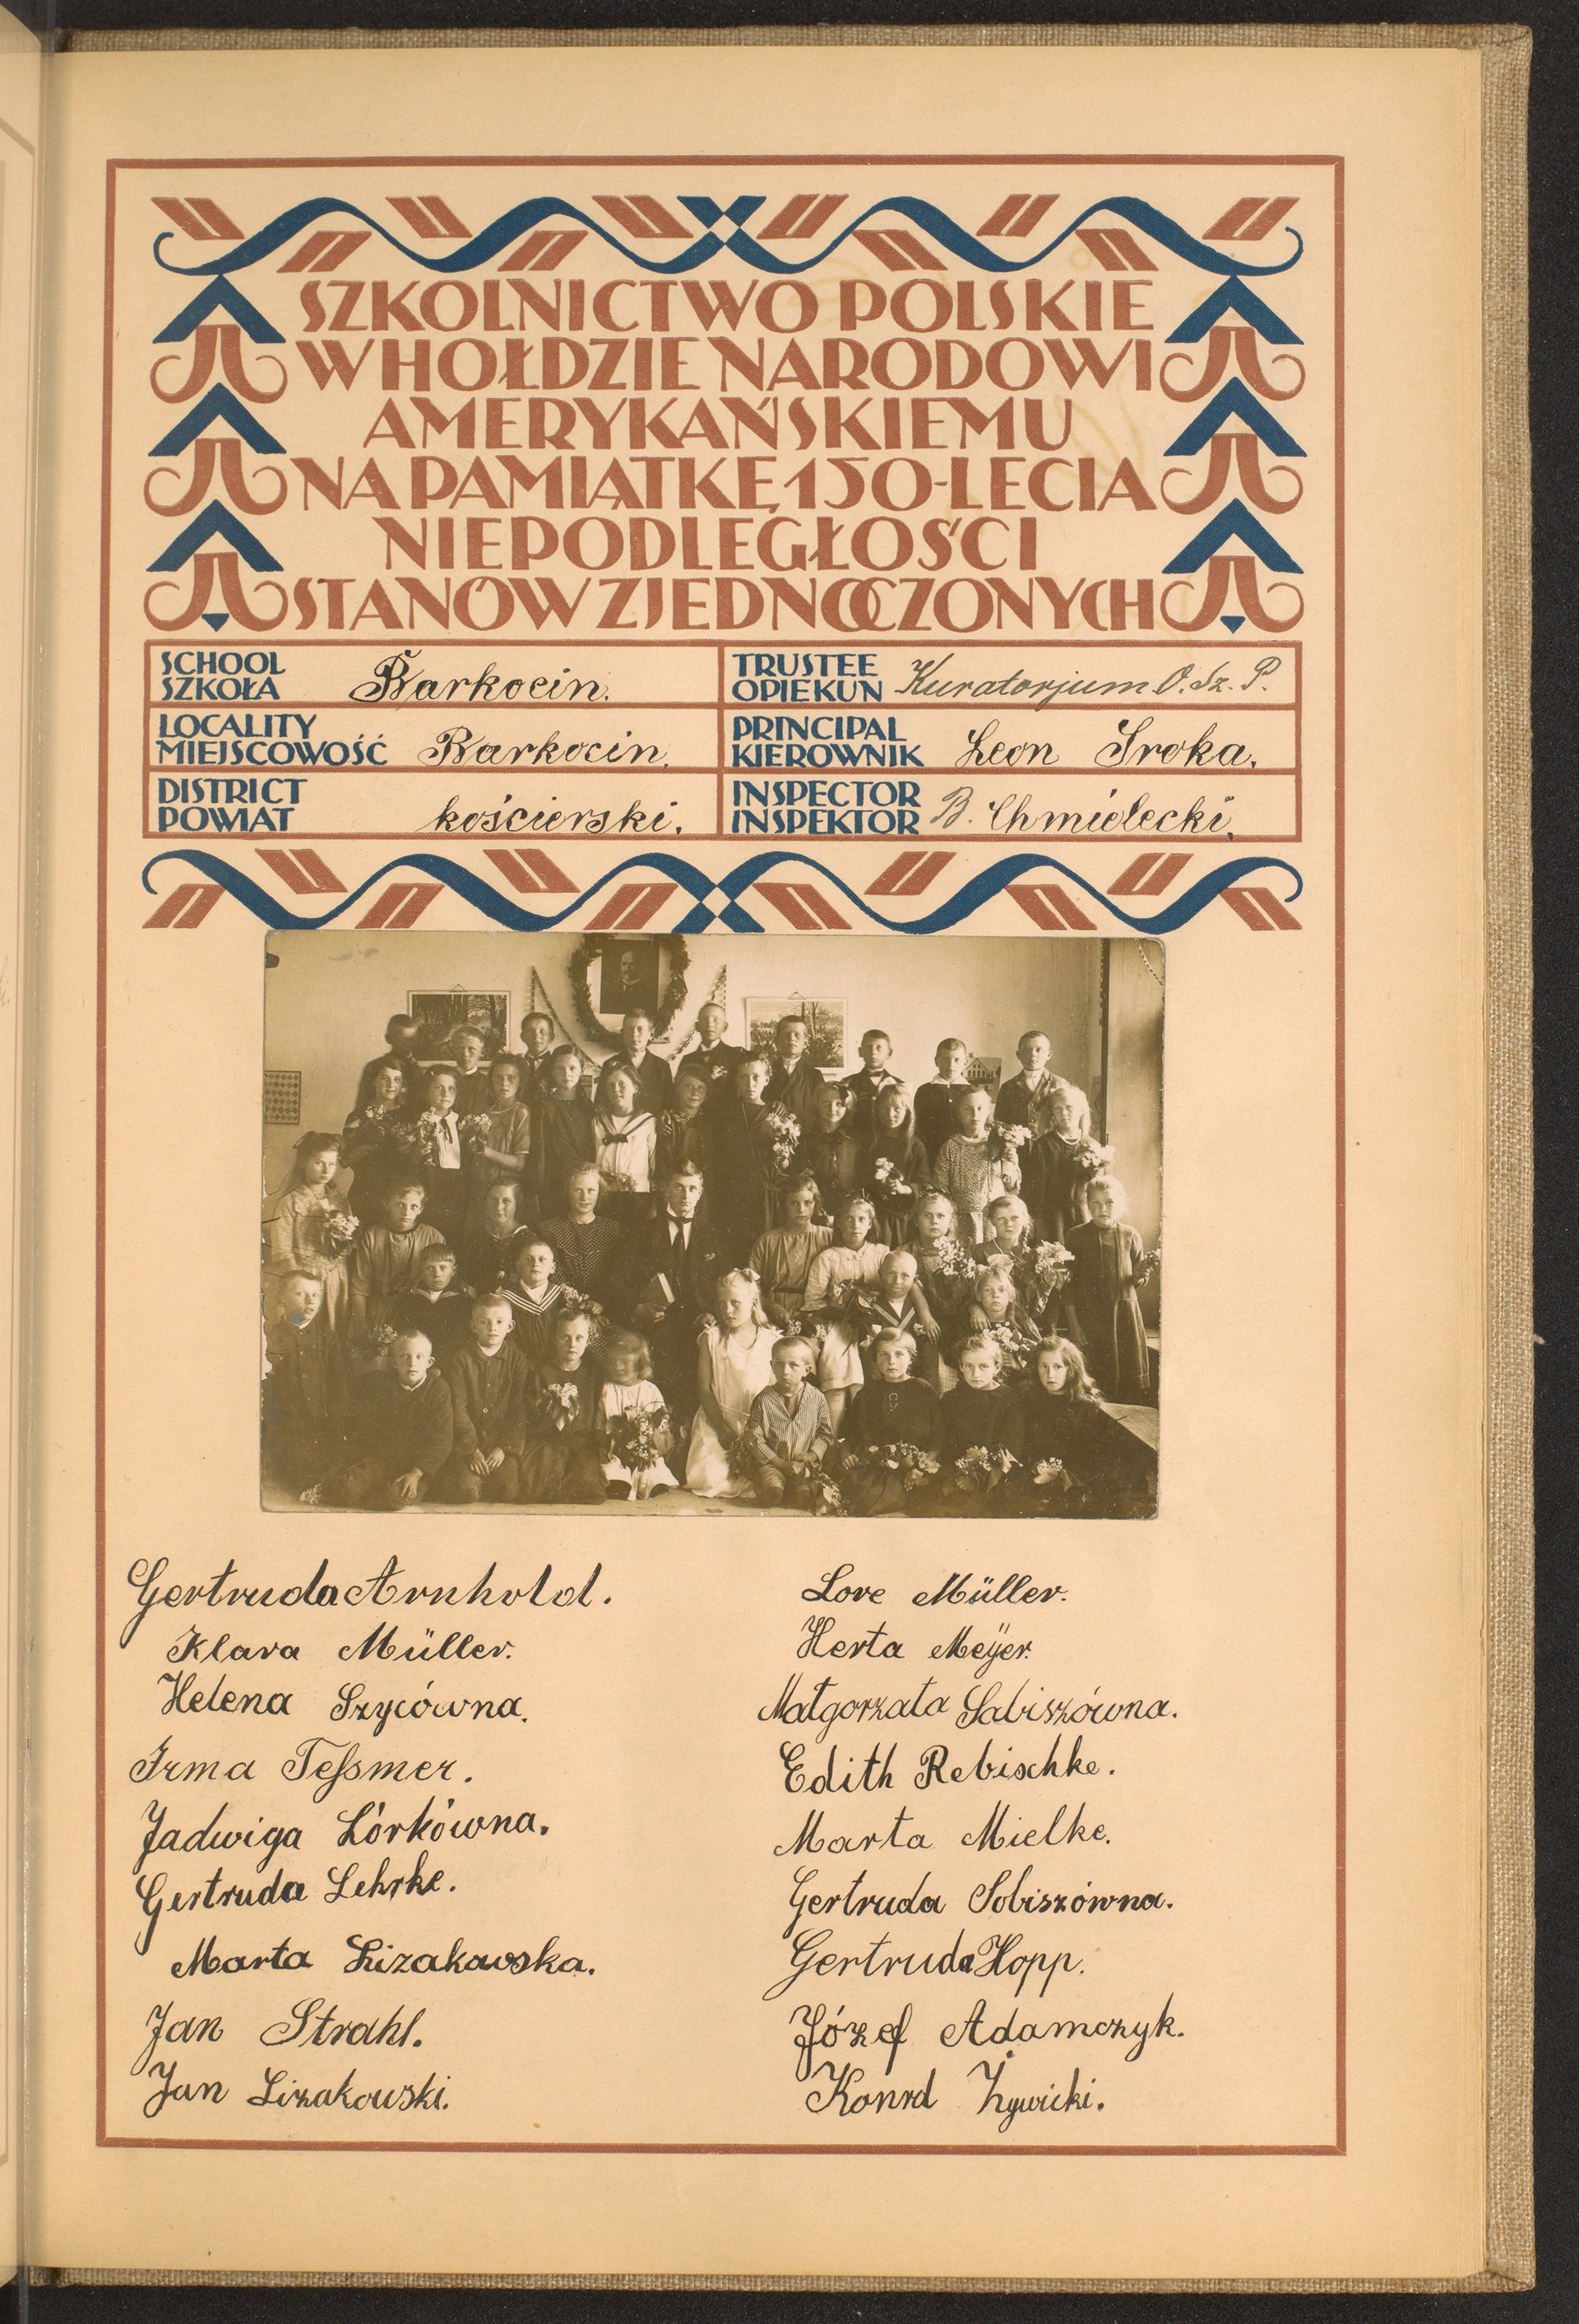 SZKOLNICTWO POLSKIE
W HOŁDZIE NARODOWI
AMERYKAŃSKIEMU
NA PAMIĄTKĘ 150-LECIA
NIEPODLEGŁOŚCI
STANÓW ZJEDNOCZONYCH
SCHOOL
SZKOŁA Barkocin.
TRUSTEE
OPIEKUN Kuratorjum O. Sz. P.
LOCALITY
MIEJSCOWOŚĆ Barkocin.
PRINCIPAL
KIEROWNIK Leon Sroka.
DISTRICT
POWIAT kościerski.
INSPECTOR
INSPEKTOR B. Chmielecki.
Gertruda Arnhold.
Klara Müller.
Helena Szycówna.
Irma Teſsmer.
Jadwiga Lórkówna.
Gertruda Lehrke.
Marta Lizakowska.
Jan Strahl.
Jan Lizakowski.
Lore Müller.
Herta Meÿer.
Małgorzata Sabiszówna.
Edith Rebischke.
Marta Mielke.
Gertruda Sobiszówna.
Gertruda Hopp.
Józef Adamczyk.
Konrd Żywicki.